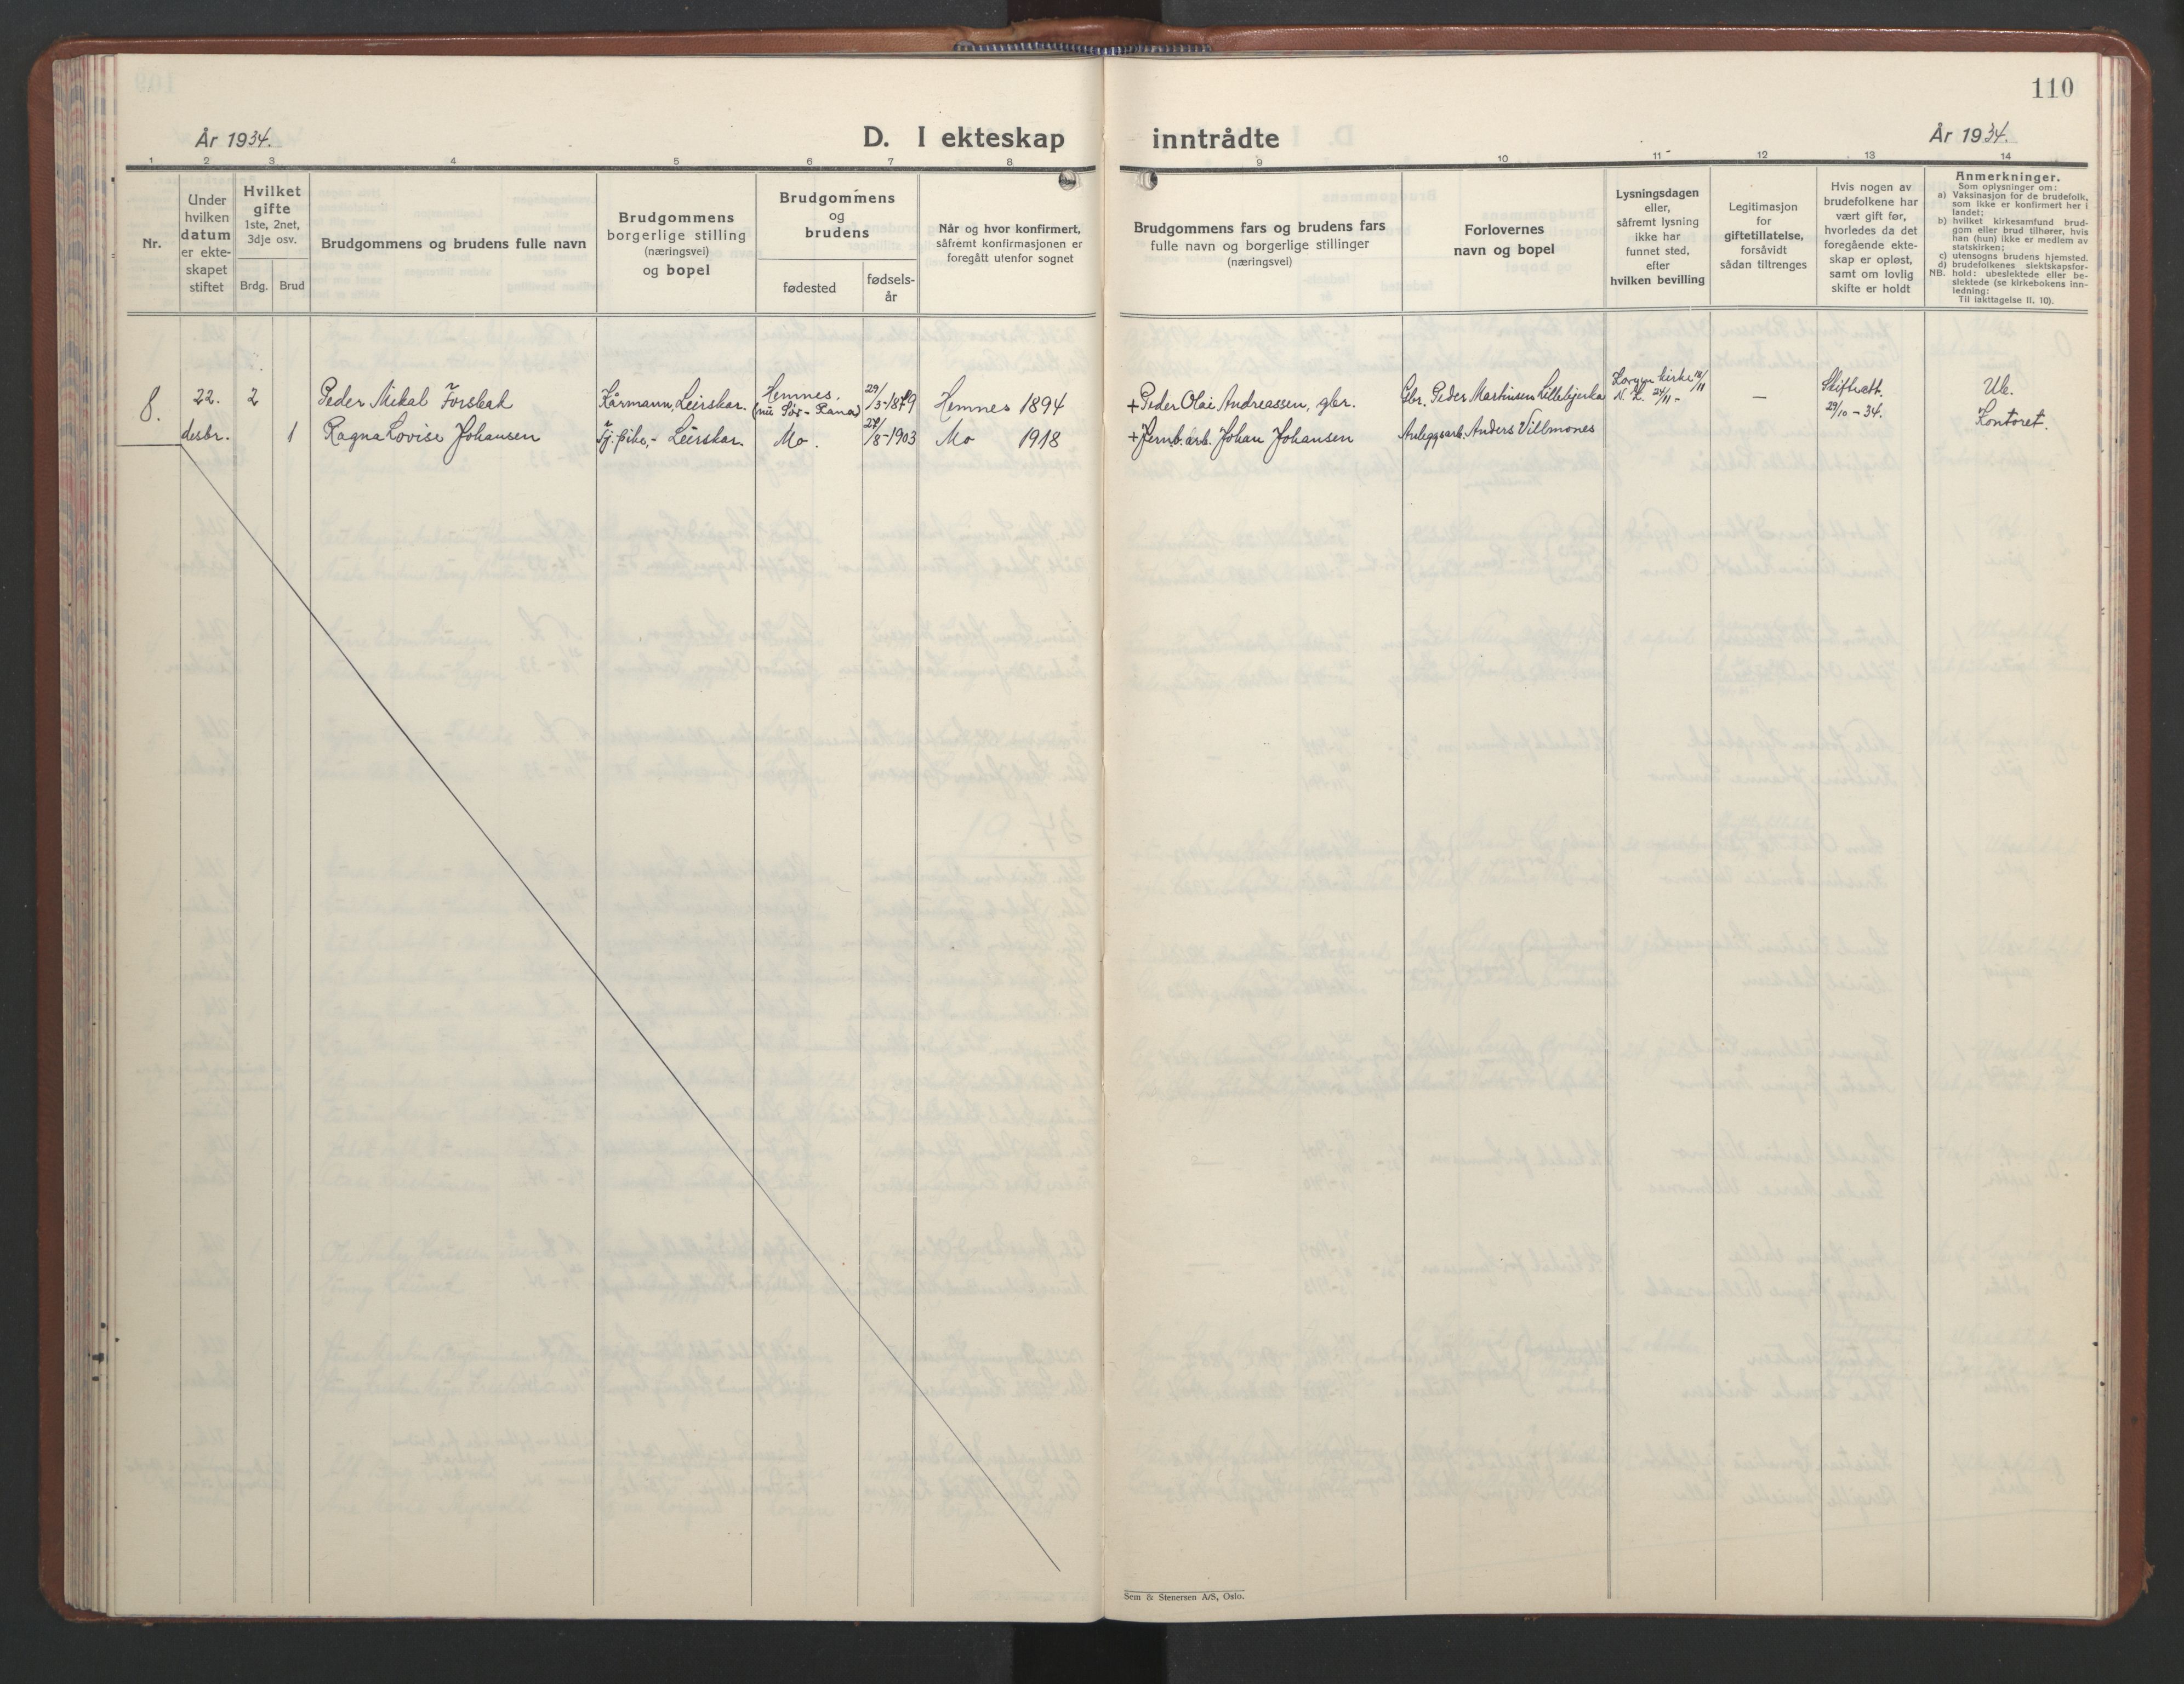 110
År 1934.
D. I ekteskap inntrådte
År 1934.
1 2 3 4 5 6 7 8 9 10 11 12 13 14
Nr.
Under
hvilken
datum
er ekte-
skapet
stiftet
Hvilket
gifte
1ste, 2net,
3dje osv.
Brdg.
Brud
Brudgommens og brudens fulle navn
Brudgommens
borgerlige stilling
(næringsvei)
og bopel
Brudgommens
og
brudens
fødested
fødsels-
år
Når og hvor konfirmert,
såfremt konfirmasjonen er
foregått utenfor sognet
Brudgommens fars og brudens fars
fulle navn og borgerlige stillinger
(næringsvei)
Forlovernes
navn og bopel
Lysningsdagen
eller,
såfremt lysning
ikke har
funnet sted,
efter
hvilken bevilling
Legitimasjon
for
giftetillatelse,
forsåvidt
sådan tiltrenges
Hvis nogen av
brudefolkene har
vært gift før,
hvorledes da det
foregående ekte-
skap er opløst,
samt om lovlig
skifte er holdt
Anmerkninger.
Som oplysninger om:
a) Vaksinasjon for de brudefolk,
som ikke er konfirmert her i
landet;
b) hvilket kirkesamfund brud-
gom eller brud tilhører, hvis
han (hun) ikke er medlem av
statskirken;
c) utensogns brudens hjemsted.
d) brudefolkenes slektskapsfor-
NB. hold: ubeslektede eller be-
slektede (se kirkebokens inn-
ledning:
Til iakttagelse II, 10).
8.
22.
desbr.
2
1
Peder Mikal Forsbak
Ragna Lovise Johansen
Kårmann, Leirskar.
Tj. pike, - Leirskar.
Hemnes.
(nu Sør-Rana)
Mo.
29/3-1879
/8-1903
Hemnes 1894
Mo 1918
+ Peder Olai Andreassen, gbr.
+ Jernb. arb. Johan Johansen
Gbr. Peder Martinsen Lillebjerka
Anleggsarb. Anders Villmones
Korgen kirke 18/11
N. L. 24/11 -
—
Skifteatt.
29/10 - 34.
Ub.
Kontoret.
Sem & Stenersen A/S, Oslo.